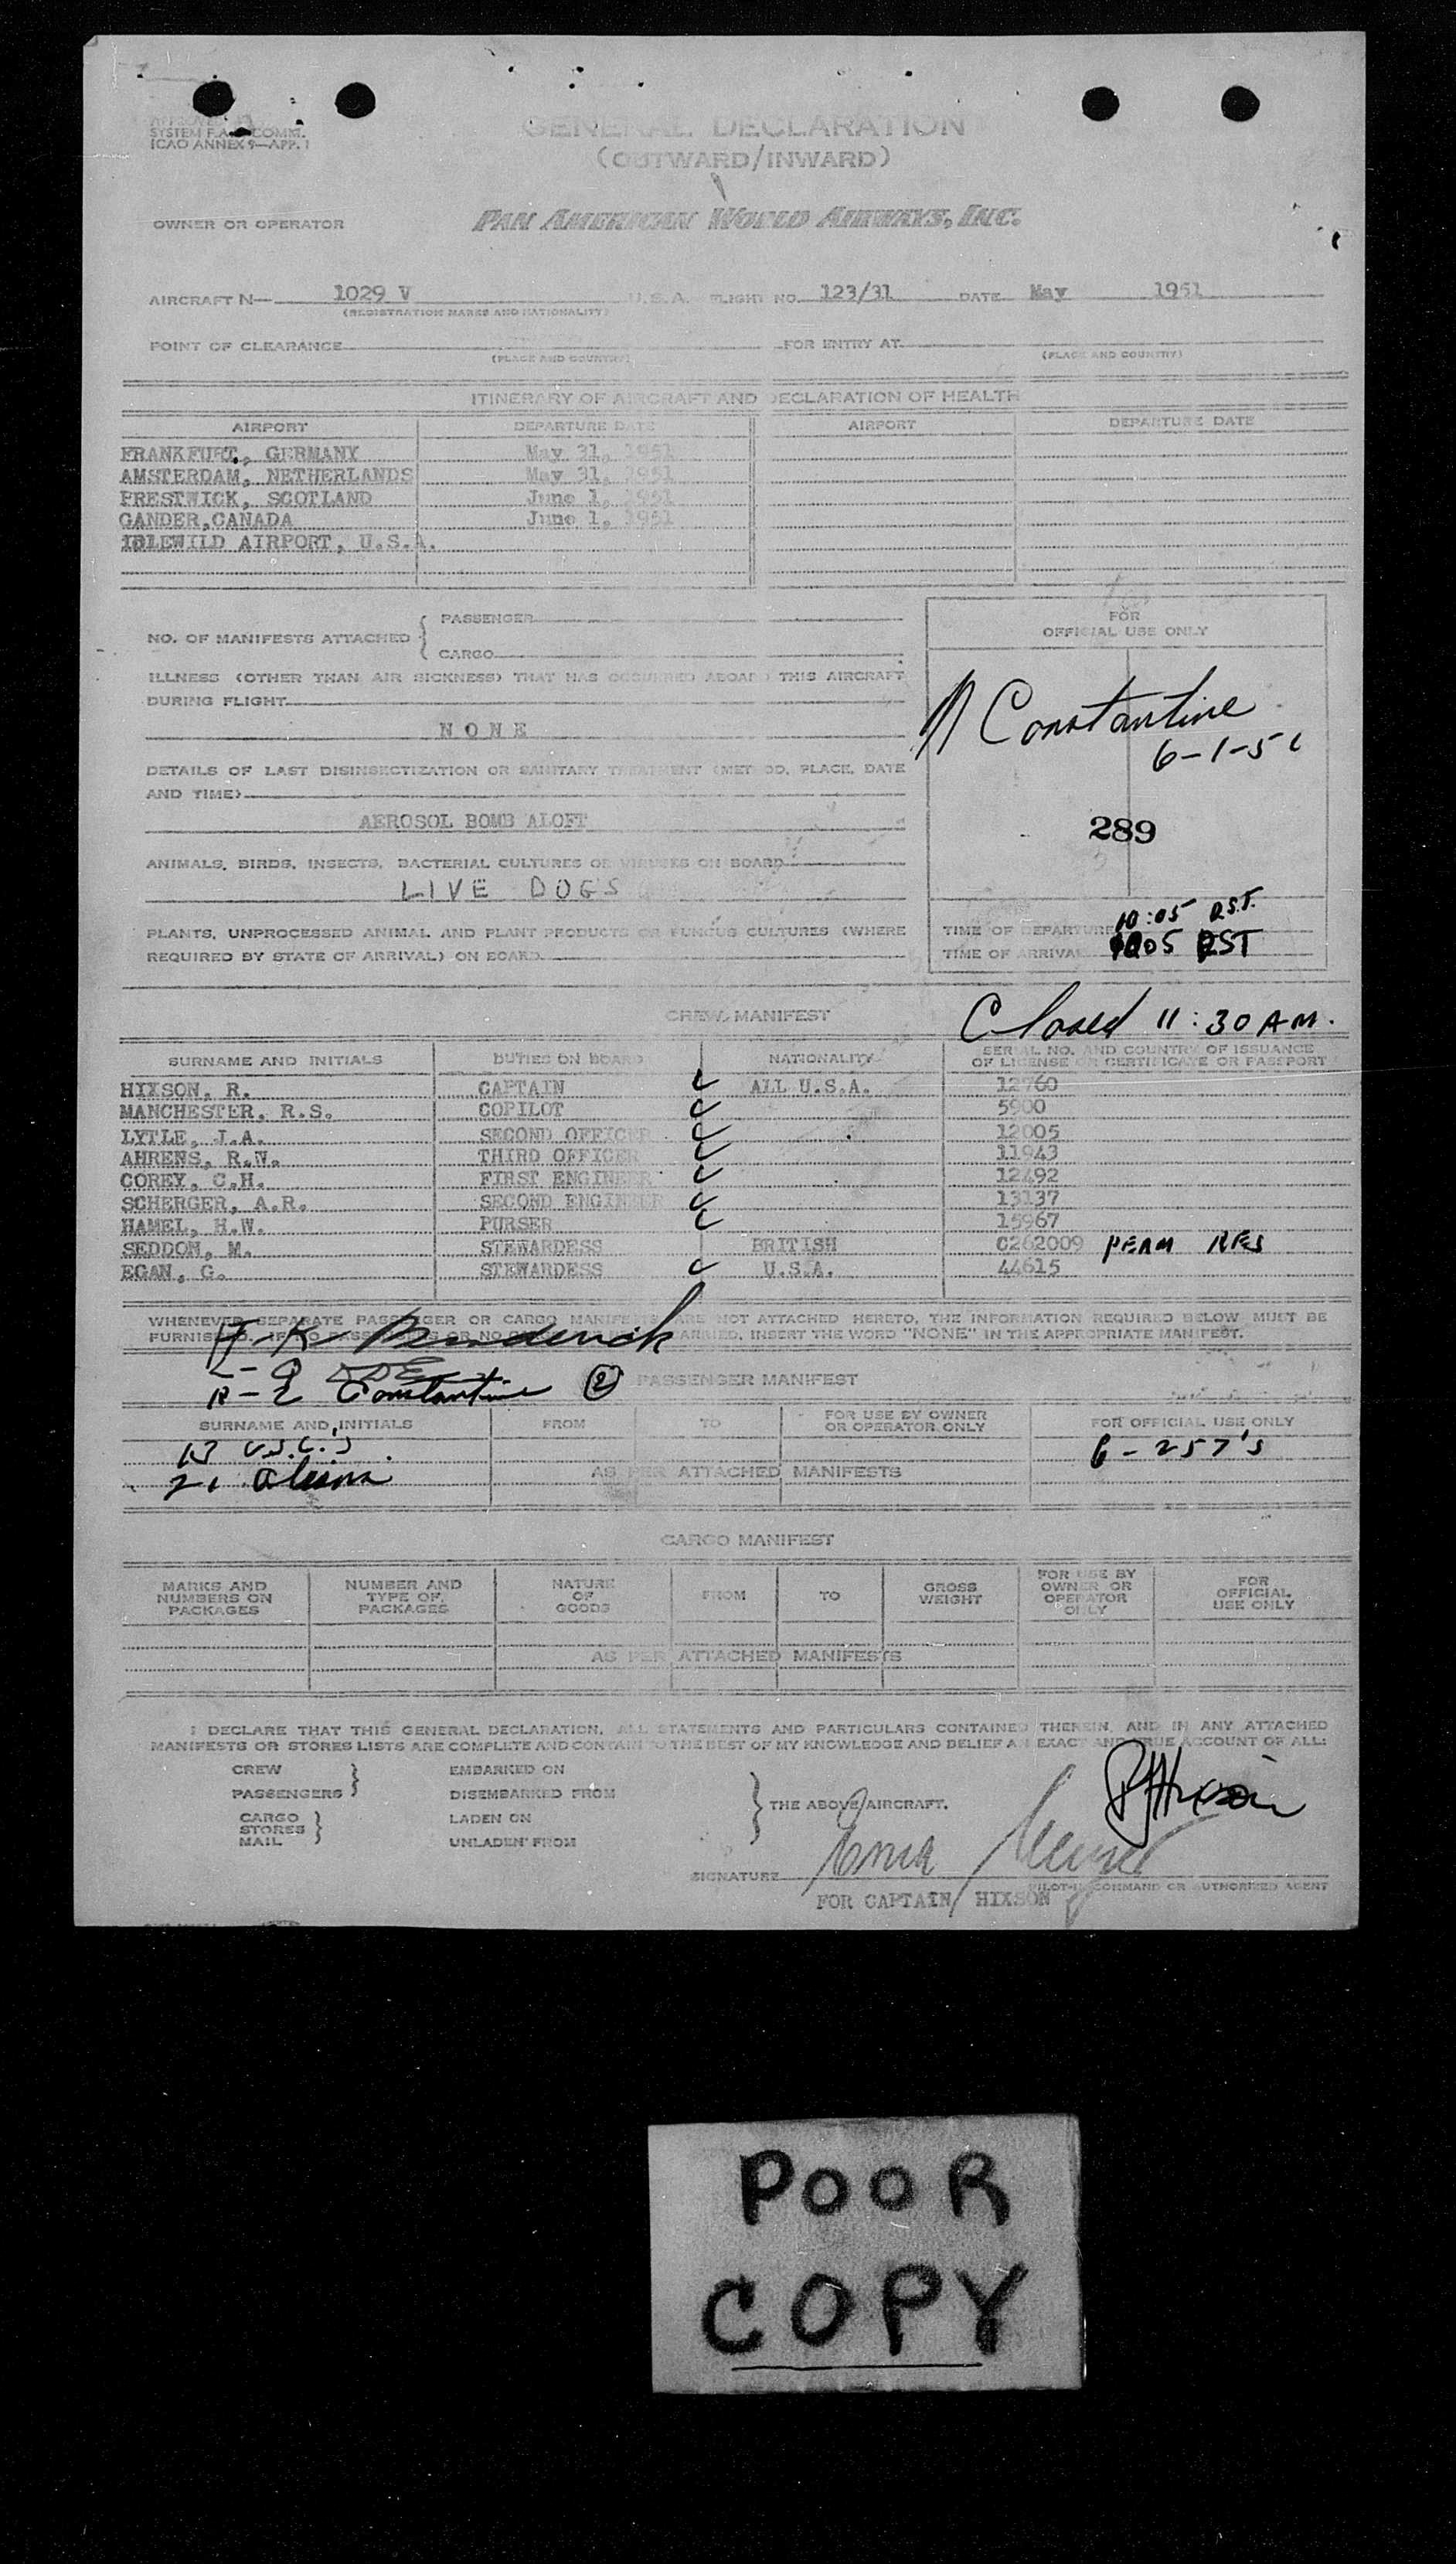 SYSTEM F.A.L. COMM.
ICAO ANNEX 9—APP. 1
GENERAL DECLARATION
(OUTWARD/INWARD)
OWNER OR OPERATOR PAN AMERICAN WORLD AIRWAYS, INC.
AIRCRAFT N— 1029 V U.S.A. FLIGHT NO. 123/31 DATE May 1951
(REGISTRATION MARKS AND NATIONALITY)
POINT OF CLEARANCE FOR ENTRY AT
(PLACE AND COUNTRY) (PLACE AND COUNTRY)
ITINERARY OF AIRCRAFT AND DECLARATION OF HEALTH
AIRPORT DEPARTURE DATE AIRPORT DEPARTURE DATE
FRANKFURT, GERMANY May 31, 1951
AMSTERDAM, NETHERLANDS May 31, 1951
PRESTWICK, SCOTLAND June 1, 1951
GANDER, CANADA June 1, 1951
IDLEWILD AIRPORT, U.S.A.
NO. OF MANIFESTS ATTACHED PASSENGER
CARGO
FOR
OFFICIAL USE ONLY
ILLNESS (OTHER THAN AIR SICKNESS) THAT HAS OCCURRED ABOARD THIS AIRCRAFT
DURING FLIGHT
NONE
Constantine
6-1-51
DETAILS OF LAST DISINSECTIZATION OR SANITARY TREATMENT (METHOD, PLACE, DATE
AND TIME)
AEROSOL BOMB ALOFT
289
ANIMALS, BIRDS, INSECTS, BACTERIAL CULTURES OR VIRUSES ON BOARD
LIVE DOGS
PLANTS, UNPROCESSED ANIMAL AND PLANT PRODUCTS OR FUNGUS CULTURES (WHERE
REQUIRED BY STATE OF ARRIVAL) ON BOARD
TIME OF DEPARTURE 10:05 D.S.T.
TIME OF ARRIVAL 1005 DST
CREW MANIFEST
Closed 11:30 AM.
SURNAME AND INITIALS DUTIES ON BOARD NATIONALITY SERIAL NO. AND COUNTRY OF ISSUANCE
OF LICENSE OR CERTIFICATE OR PASSPORT
HIXSON, R. CAPTAIN ALL U.S.A. 12760
MANCHESTER, R.S. COPILOT 5900
LYTLE, J.A. SECOND OFFICER 12005
AHRENS, R.W. THIRD OFFICER 11943
COREY, C.H. FIRST ENGINEER 12492
SCHERGER, A.R. SECOND ENGINEER 13137
HAMEL, H.W. PURSER 15967
SEDDON, M. STEWARDESS BRITISH C262009 PERM RES
EGAN, G. STEWARDESS U.S.A. 44615
WHENEVER SEPARATE PASSENGER OR CARGO MANIFESTS ARE NOT ATTACHED HERETO, THE INFORMATION REQUIRED BELOW MUST BE
FURNISHED. IF NO PASSENGERS OR NO CARGO CARRIED, INSERT THE WORD "NONE" IN THE APPROPRIATE MANIFEST.
Constantine 2
PASSENGER MANIFEST
SURNAME AND INITIALS FROM TO FOR USE BY OWNER
OR OPERATOR ONLY FOR OFFICIAL USE ONLY
U.S.C.'s 6-257's
21 Aliens AS PER ATTACHED MANIFESTS
CARGO MANIFEST
MARKS AND
NUMBERS ON
PACKAGES
NUMBER AND
TYPE OF
PACKAGES
NATURE
OF
GOODS
FROM TO
GROSS
WEIGHT
FOR USE BY
OWNER OR
OPERATOR
ONLY
FOR
OFFICIAL
USE ONLY
AS PER ATTACHED MANIFESTS
I DECLARE THAT THIS GENERAL DECLARATION, ALL STATEMENTS AND PARTICULARS CONTAINED THEREIN, AND IN ANY ATTACHED
MANIFESTS OR STORES LISTS ARE COMPLETE AND CONTAIN TO THE BEST OF MY KNOWLEDGE AND BELIEF AN EXACT AND TRUE ACCOUNT OF ALL:
CREW EMBARKED ON
PASSENGERS DISEMBARKED FROM
THE ABOVE AIRCRAFT.
CARGO LADEN ON
STORES
MAIL UNLADEN FROM
Hixson
SIGNATURE
PILOT-IN-COMMAND OR AUTHORIZED AGENT
FOR CAPTAIN HIXSON
POOR
COPY